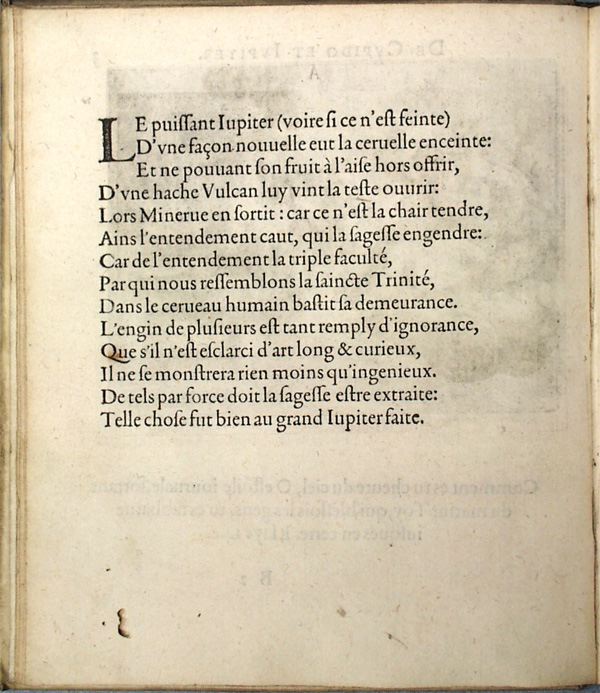 LE puiſſant Iupiter (voire ſi ce n'eſt feinte)
D'vne façon nouuelle eut la ceruelle enceinte:
Et ne pouuant ſon fruit à l'aiſe hors offrir,
D'vne hache Vulcan luy vint la teſte ouurir:
Lors Minerue en ſortit : car ce n'eſt la chair tendre,
Ains l'entendement caut, qui la ſageſſe engendre:
Car de l'entendement la triple faculté,
Par qui nous reſſemblons la ſaincte Trinité,
Dans le cerueau humain baſtit ſa demeurance.
L'engin de pluſieurs eſt tant remply d'ignorance,
Que s'il n'eſt eſclarci d'art long & curieux,
Il ne ſe monſtrera rien moins qu'ingenieux.
De tels par force doit la ſageſſe eſtre extraite:
Telle choſe fut bien au grand Iupiter faite.